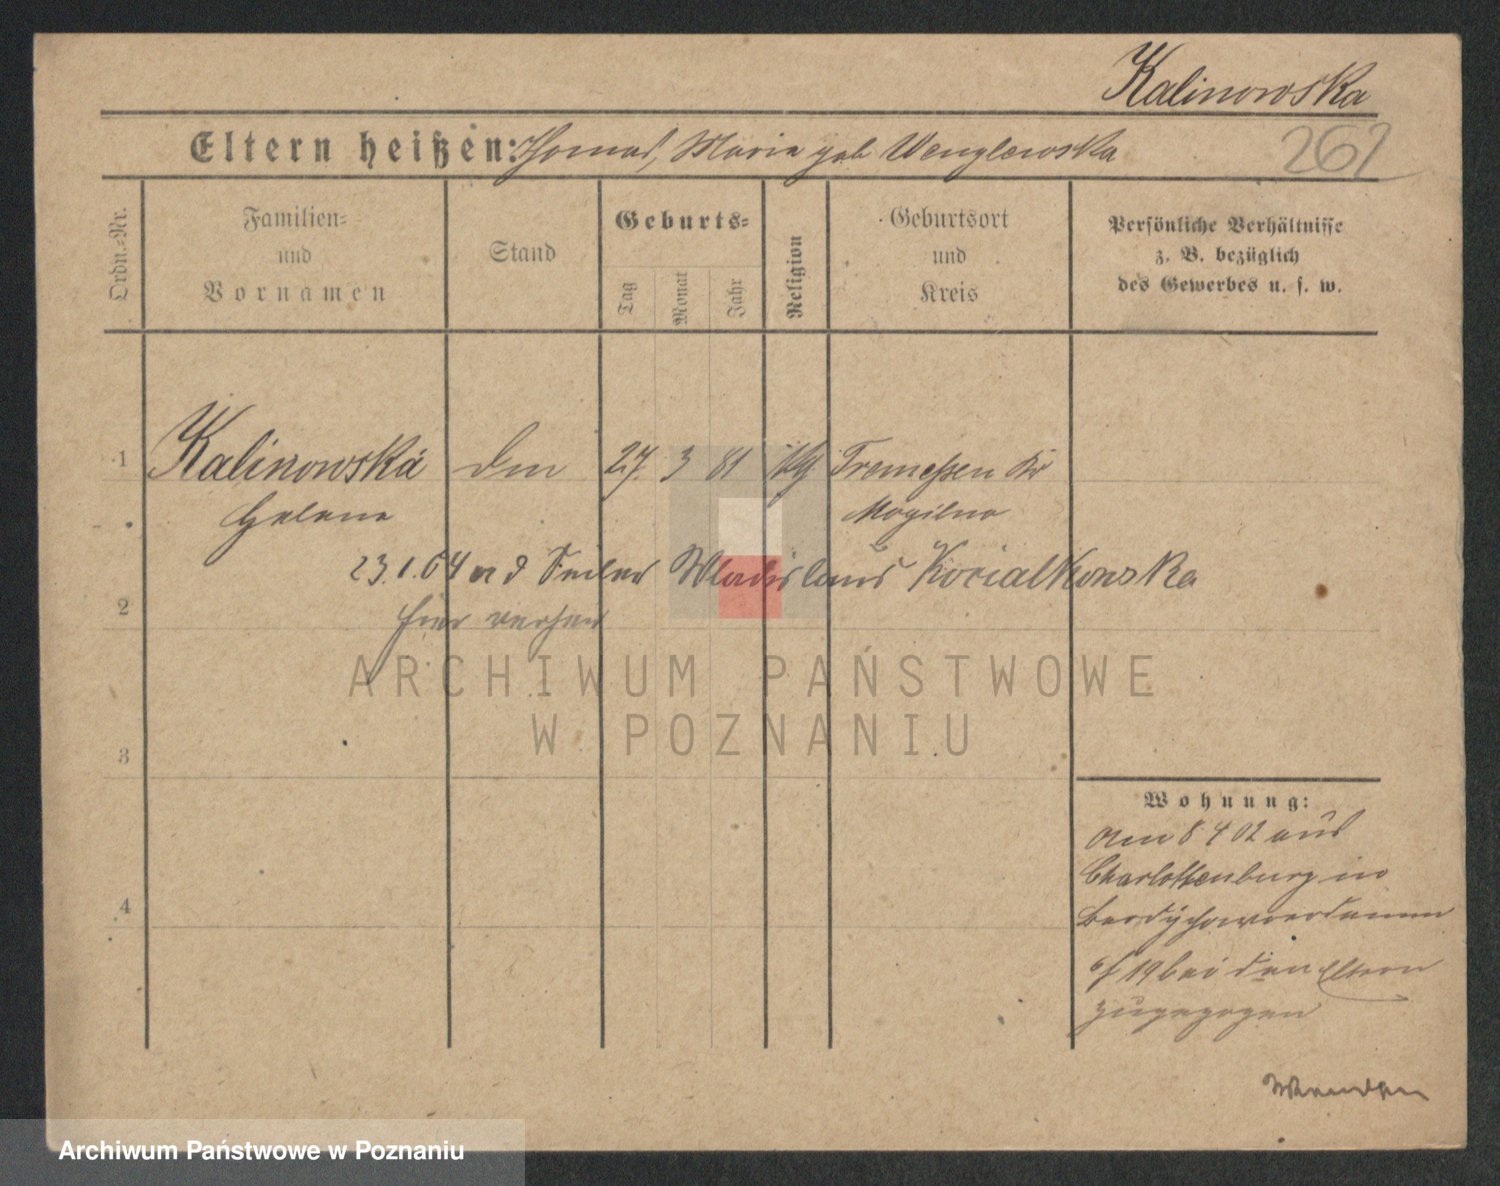 Kalinowska
Eltern heißen: Thomas, Maria geb Wenglewska
262
Ordn.=Nr.
Familien=
und
Vornamen
Stand
Geburts=
Tag
Monat
Jahr
Religion
Geburtsort
und
Kreis
Persönliche Verhältnisse
z. B. bezüglich
des Gewerbes u. s. w.
1 Kalinowska 27. 3 81 Tremessen Kr
Helene Mogilno
23.1.04 Wladislaus
2 hier
3
4
ARCHIWUM PAŃSTWOWE
W POZNANIU
Wohnung:
Am 8 4 02 aus
Charlottenburg in
19 bei den Eltern
zugezogen
Archiwum Państwowe w Poznaniu